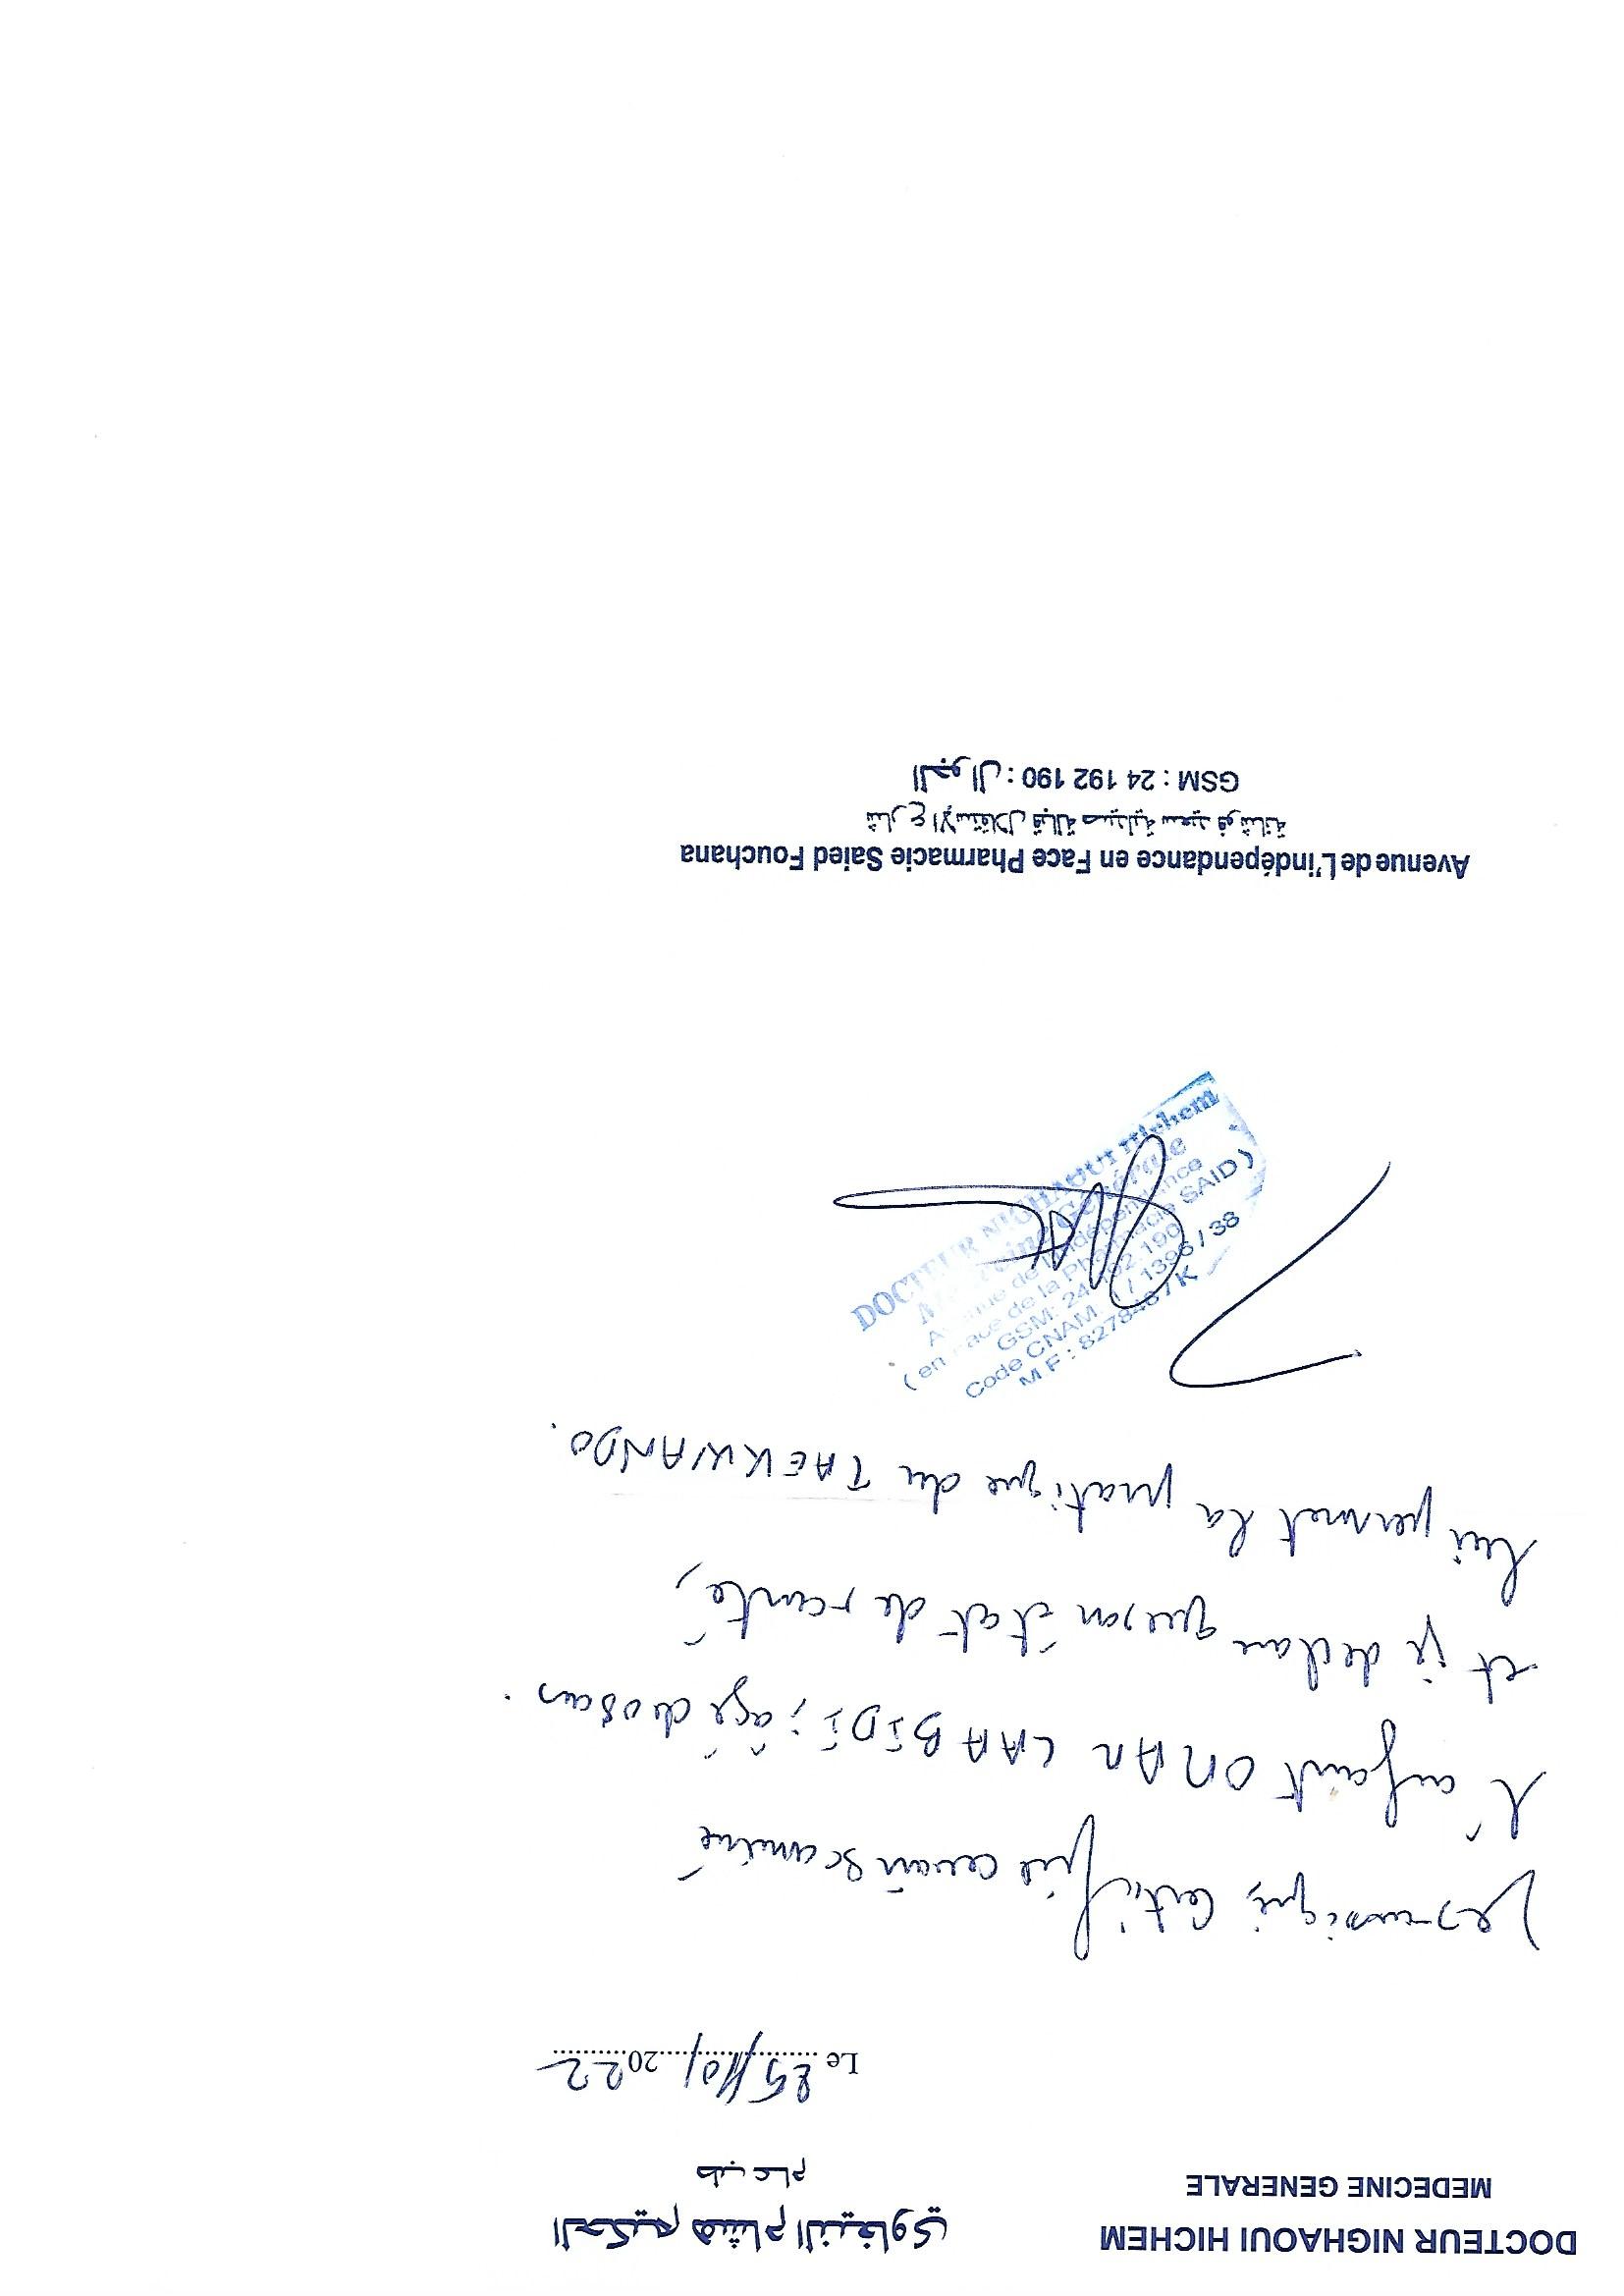 DOCTEUR NIGHAOUI HICHEM
الحكيم هشام النيغاوي
MEDECINE GENERALE
طب عام
Le 25/10/2022
Je soussigné, certifie avoir examiné
l'enfant OMAR LAABIDI, âgé de 08 ans.
et je déclare que son état de santé,
lui permet la pratique du TAEKWANDO.
DOCTEUR NIGHAOUI Hichem
Médecine Générale
Avenue de l'indépendance
( en face de la Pharmacie SAID )
GSM: 24 192 190
Code CNAM 1 / 1396 / 38
M F : 827848 / K
Avenue de L'indépendance en Face Pharmacie Saied Fouchana
شارع الإستقلال قبالة صيدلية سعيد فوشانة
GSM : 24 192 190 : الجوال